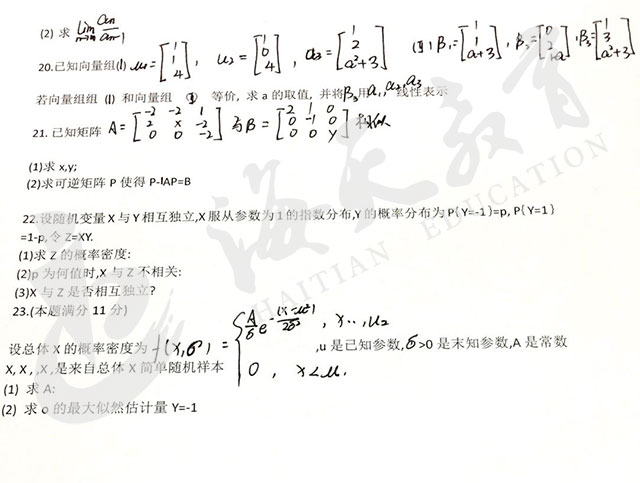 (2) 求 lim n→∞ an/an-1
20.已知向量组(Ⅰ) α1=[1 1 4], α2=[1 0 4], α3=[1 2 a²+3] (Ⅱ) β1=[1 1 a+3], β2=[0 2 1-a], β3=[1 3 a²+3]
若向量组组 (Ⅰ) 和向量组 Ⅱ 等价, 求 a 的取值, 并将β3用α1,α2,α3线性表示
21. 已知矩阵 A=[-2 -2 1; 2 x -2; 0 0 -2] 与 B=[-2 1 0; 0 -1 0; 0 0 y] 相似
(1)求 x,y;
(2)求可逆矩阵 P 使得 P-lAP=B
22.设随机变量 X 与 Y 相互独立,X 服从参数为 1 的指数分布,Y 的概率分布为 P{Y=-1}=p, P{Y=1}
=1-p,令 Z=XY.
(1)求 Z 的概率密度:
(2)p 为何值时,X 与 Z 不相关:
(3)X 与 Z 是否相互独立?
23.(本题满分 11 分)
设总体 X 的概率密度为 f(x,σ)={A/σ e^-(x-μ)²/2σ², x..,u2
,u 是已知参数,σ>0 是末知参数,A 是常数
0, x<u.
X, X , ,X ,是来自总体 X 简单随机祥本
(1) 求 A:
(2) 求 o 的最大似然估计量 Y=-1
海天教育
HAITIAN EDUCATION